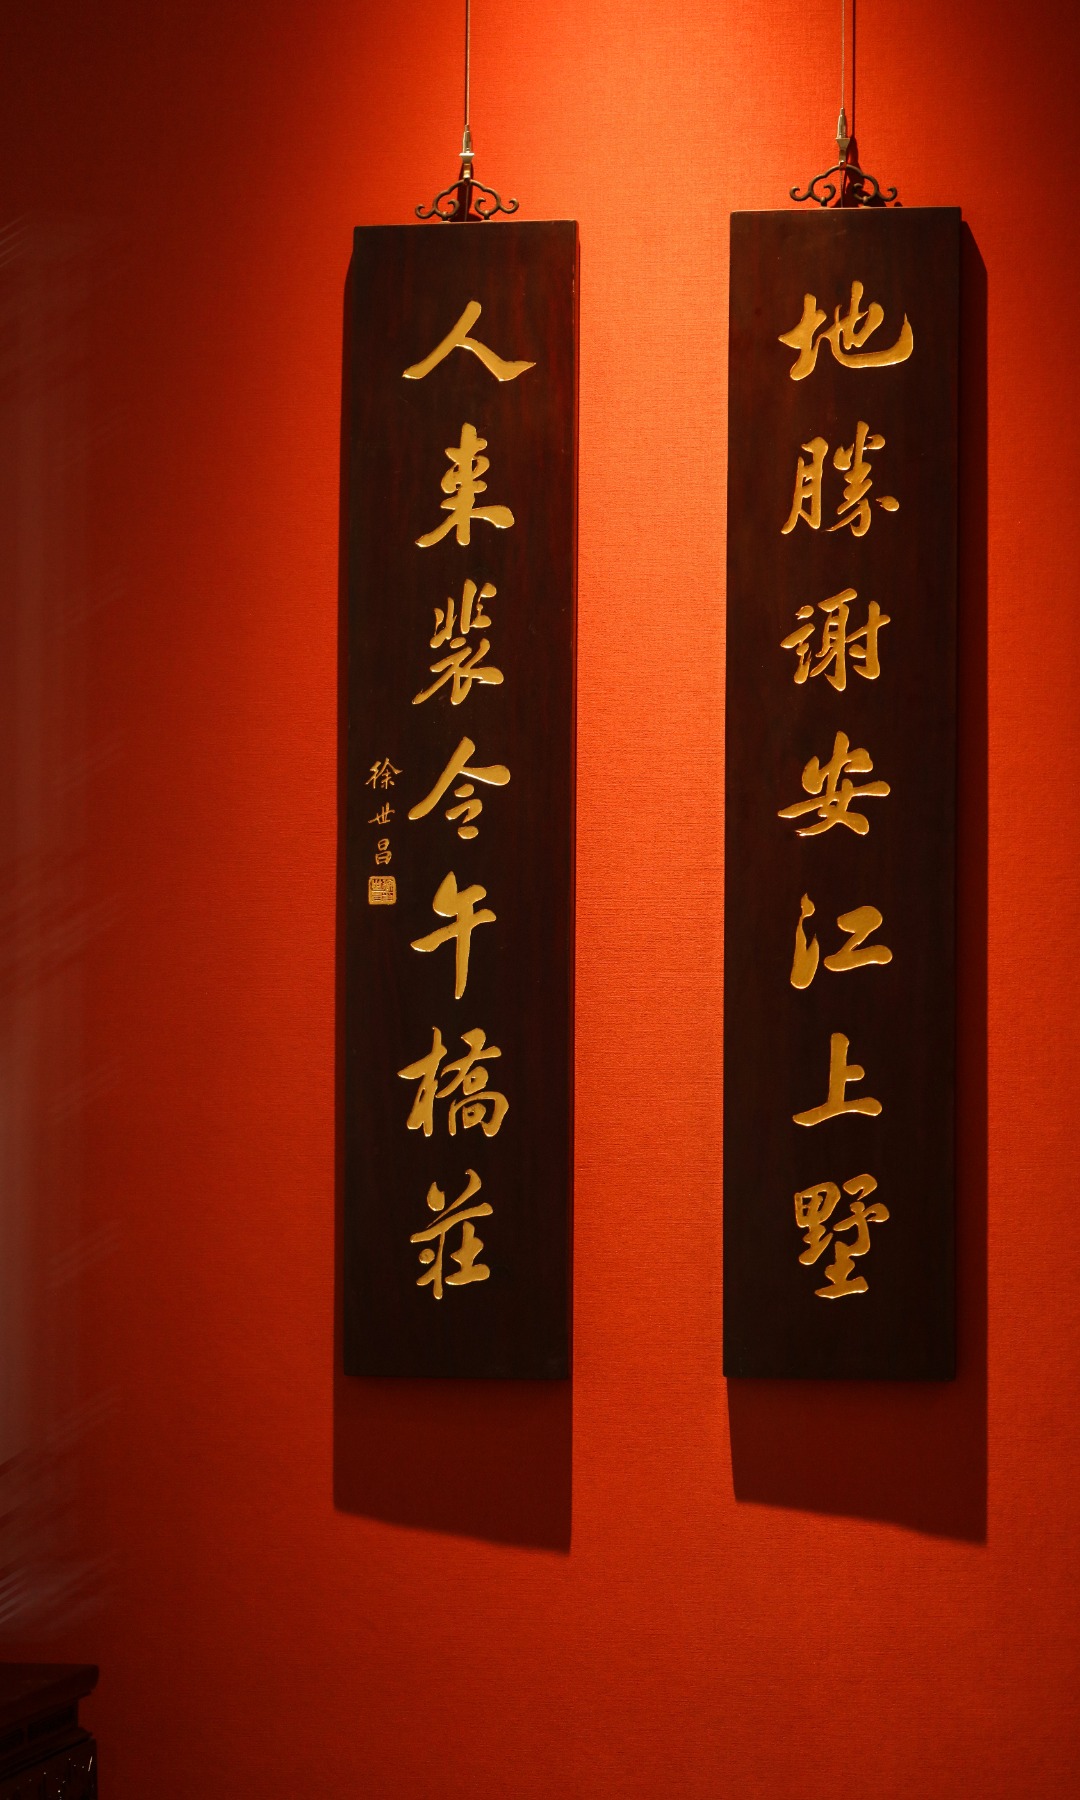 地勝謝安江上墅
人来裴令午橋莊
徐世昌